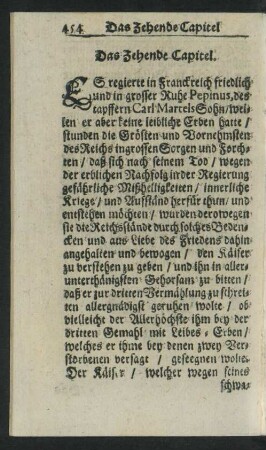 454 Das Zehende Capitel
Das Zehende Capitel.
ES regierte in Franckreich friedlich
und in grosser Ruhe Pepinus, des
tapffern Carl Martels Sohn / wei-
len er aber keine leibliche Erben hatte /
stunden die Grösten und Vornehmsten
des Reichs in grossen Sorgen und Forch-
ten / daß sich nach seinem Tod / wegen
der erblichen Nachfolg in der Regierung
gefährliche Mißhelligkeiten / innerliche
Kriege / und Auffständ herfür thun / und
entstehen möchten / wurden derowegen
sie die Reichsstände durch solches Beden-
cken und aus Liebe des Friedens dahin
angehalten und bewogen / den Käiser
zu verstehen zu geben / und ihn in aller-
unterthänigsten Gehorsam zu bitten /
daß er zur dritten Vermählung zu schrei-
ten allergnädigst geruhen wolte / ob
vielleicht der Allerhöchste ihm bey der
dritten Gemahl mit Leibes-Erben /
welches er ihme bey denen zwey Ver-
storbenen versagt / geseegnen wolte.
Der Käiser / welcher wegen seines
schwa-